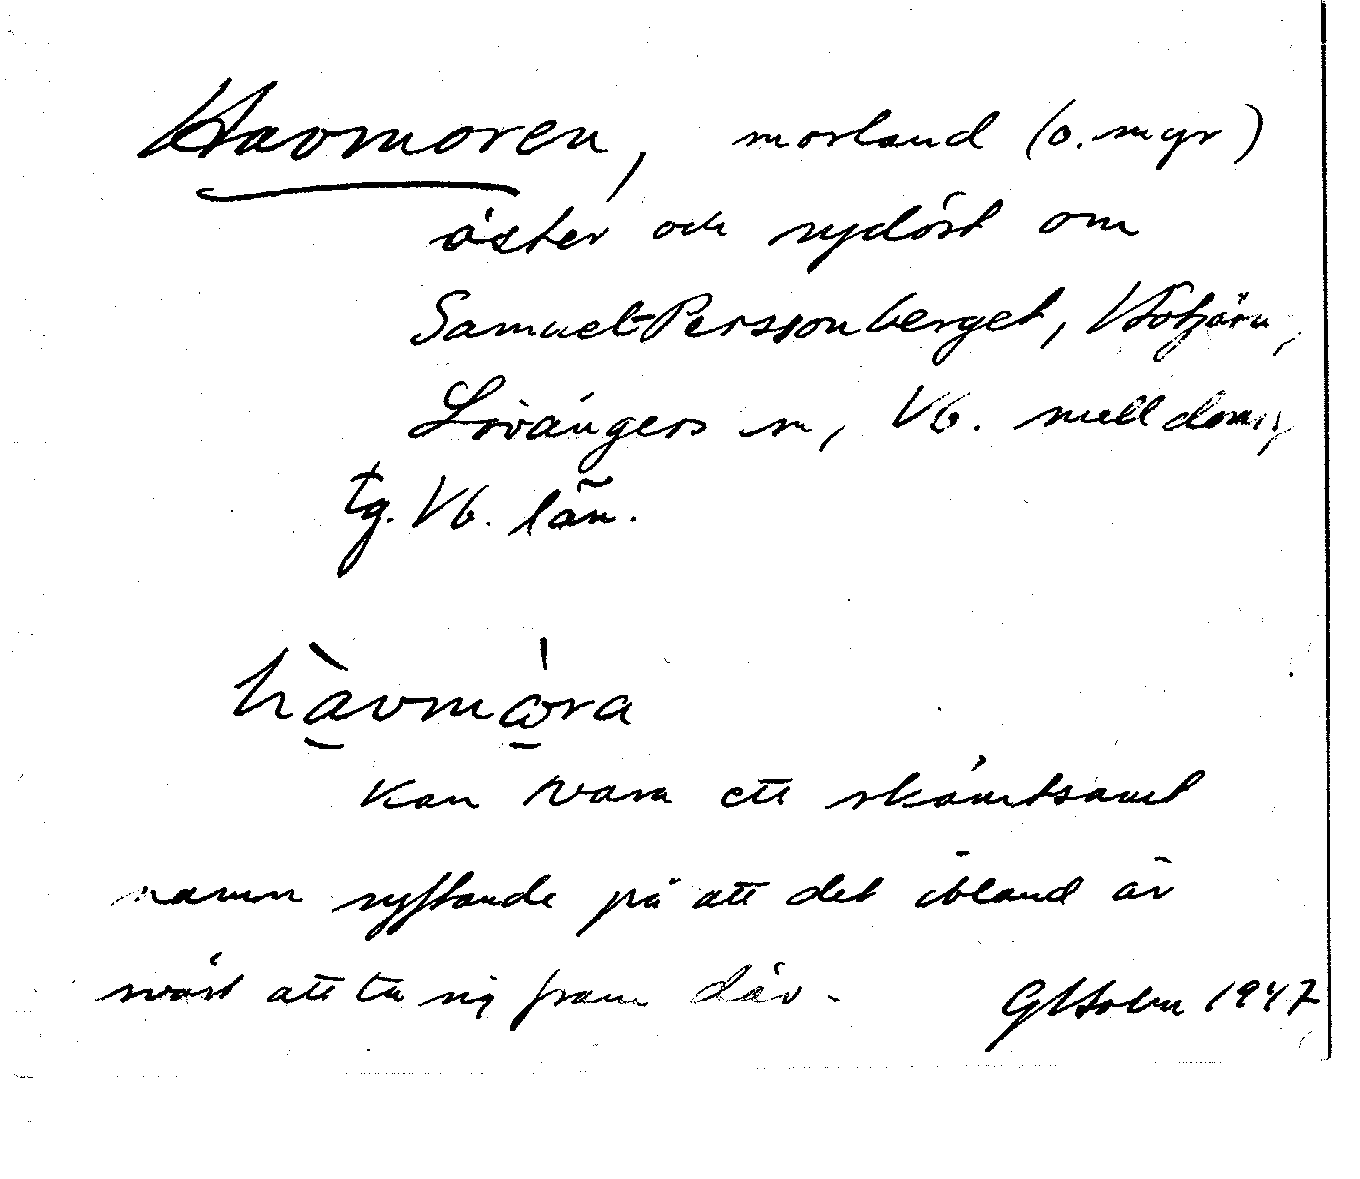 Havmoren, morland (o. myr)
öster och sydöst om
Samuel-Perssonberget, Vbotjärn,
Lövångers sn, Vb. mell doms
tg. Vb. län.
hàvmòra
Kan vara ett skämtsamt
namn syftande på att det ibland är
svårt att ta sig fram där. GHolm 1947